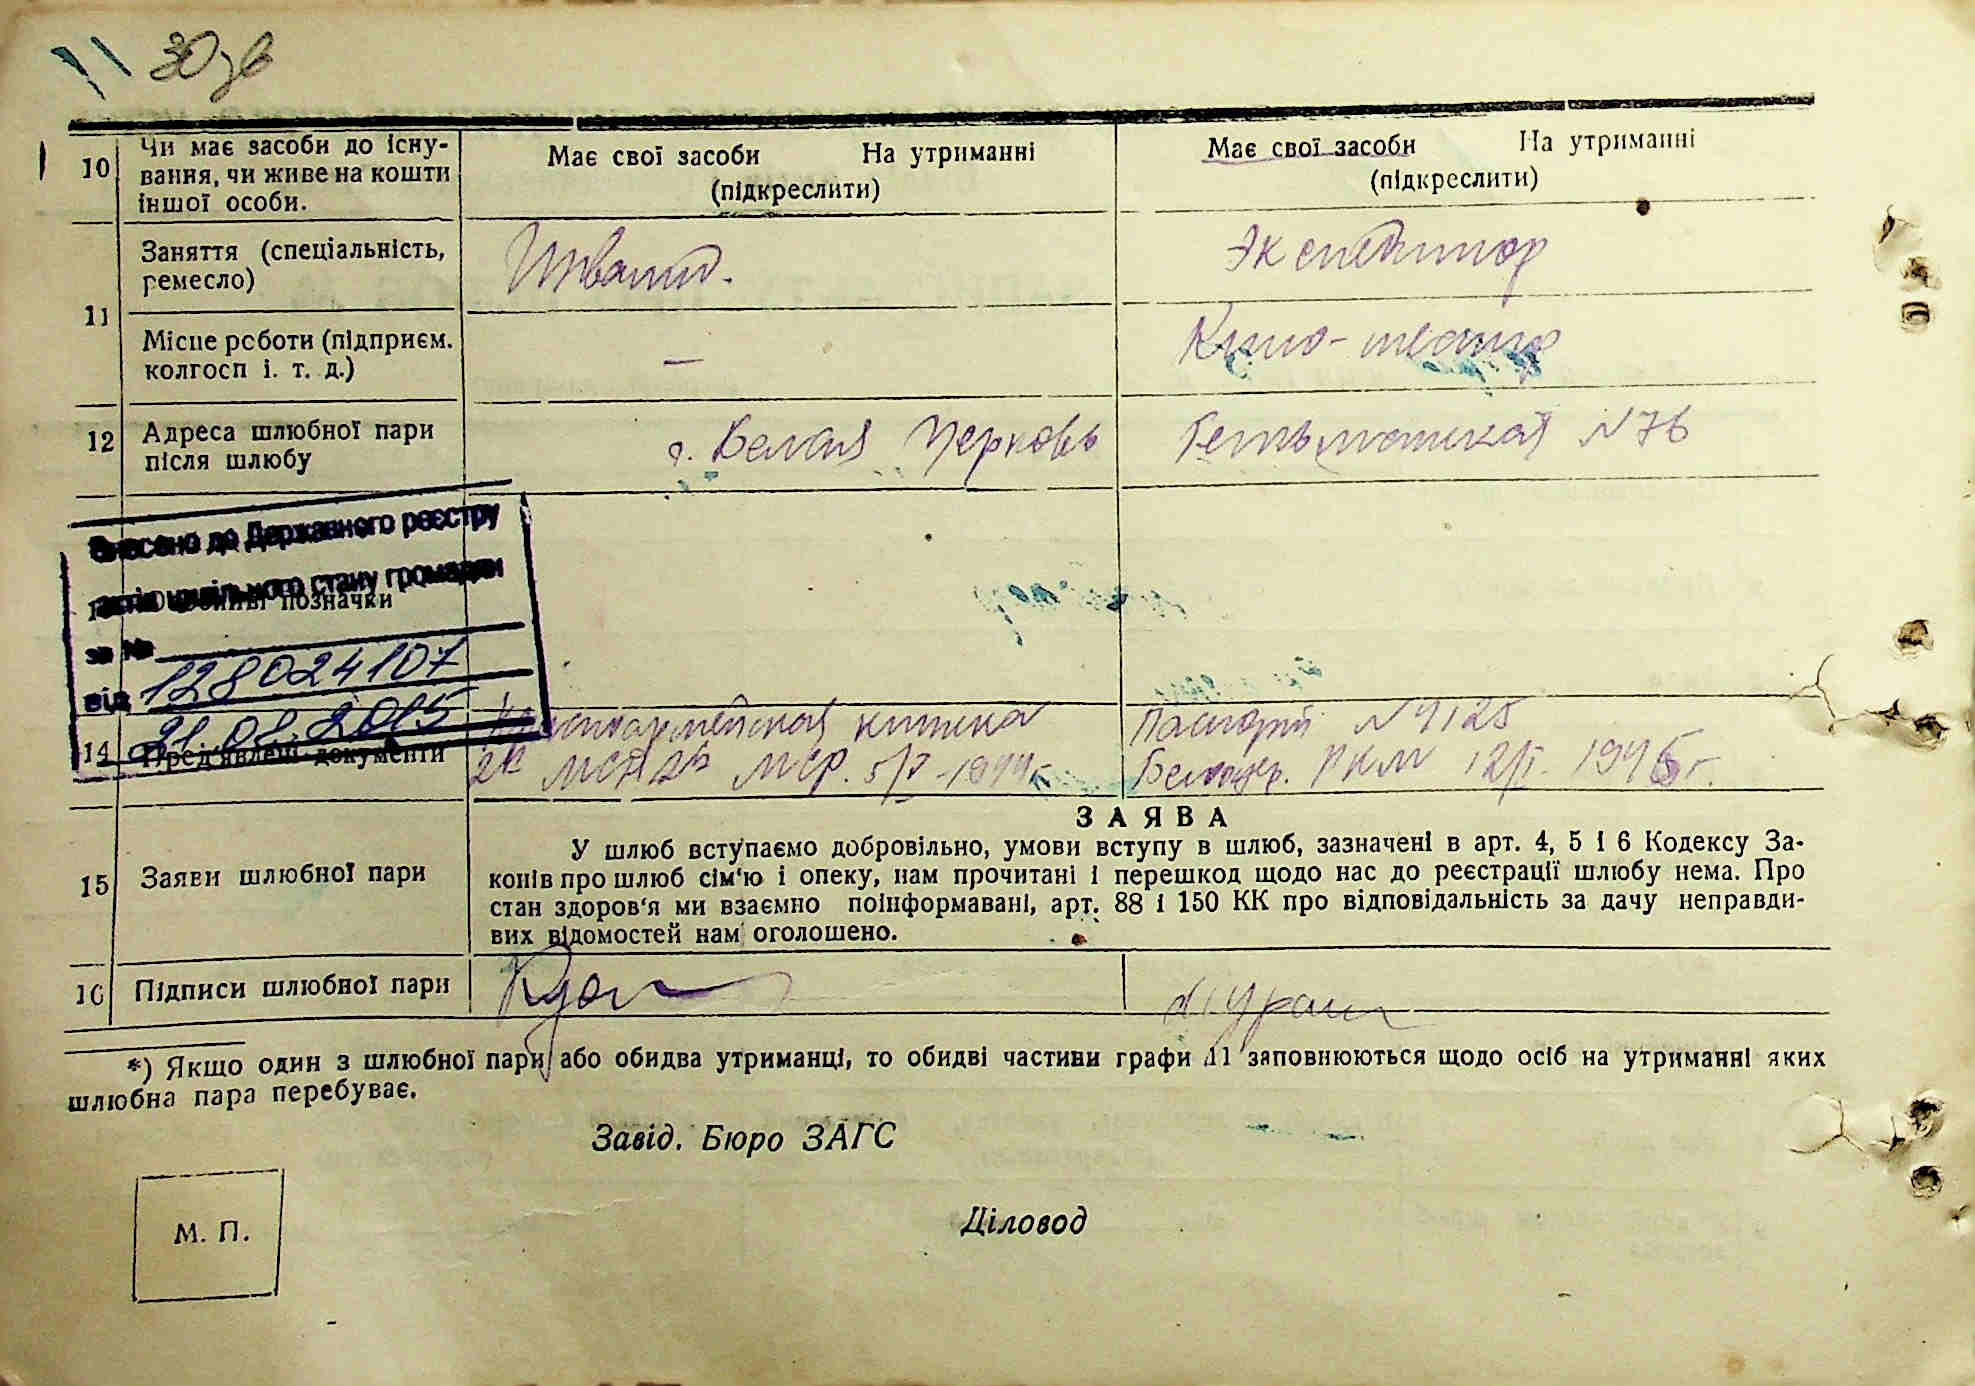 30зв
10 Чи має засоби до існу-
вання, чи живе на кошти
іншої особи.
Має свої засоби На утриманні
(підкреслити)
Має свої засоби На утриманні
(підкреслити)
11 Заняття (спеціальність,
ремесло)
Инвалид.
Экспедитор
Місце роботи (підприєм.
колгосп і. т. д.)
—
Кино-театр
12 Адреса шлюбної пари
після шлюбу
г. Белая Церковь
Гетьманская №76
Внесено до Державного реєстру
актів цивільного стану громадян
позначки
за №
128024107
від 21.02.2015
14 Пред'явлені документи
Красноармейская книжка
5/V-1944г
Паспорт №4125
Белоцер. РКМ 12/I-1946г.
15 Заяви шлюбної пари
ЗАЯВА
У шлюб вступаємо добровільно, умови вступу в шлюб, зазначені в арт. 4, 5 і 6 Кодексу За-
конів про шлюб сім'ю і опеку, нам прочитані і перешкод щодо нас до реєстрації шлюбу нема. Про
стан здоров'я ми взаємно поінформавані, арт. 88 і 150 КК про відповідальність за дачу неправди-
вих відомостей нам оголошено.
16 Підписи шлюбної пари
*) Якщо один з шлюбної пари або обидва утриманці, то обидві частини графи 11 заповнюються щодо осіб на утриманні яких
шлюбна пара перебуває.
Завід. Бюро ЗАГС
Діловод
М. П.